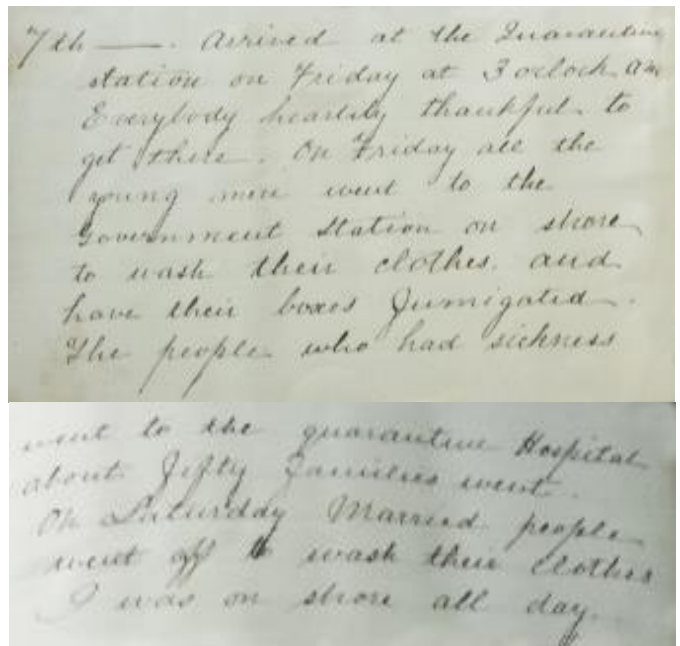 7th —. Arrived at the Quarantine
station on Friday at 3 oclock am
Everybody heartily thankful to
get there. On Friday all the
young men went to the
Government Station on shore
to wash their clothes. and
have their boxes fumigated.
The people who had sickness
went to the quarantine Hospital
about fifty families went.
On Saturday Married people
went off to wash their clothes
I was on shore all day.